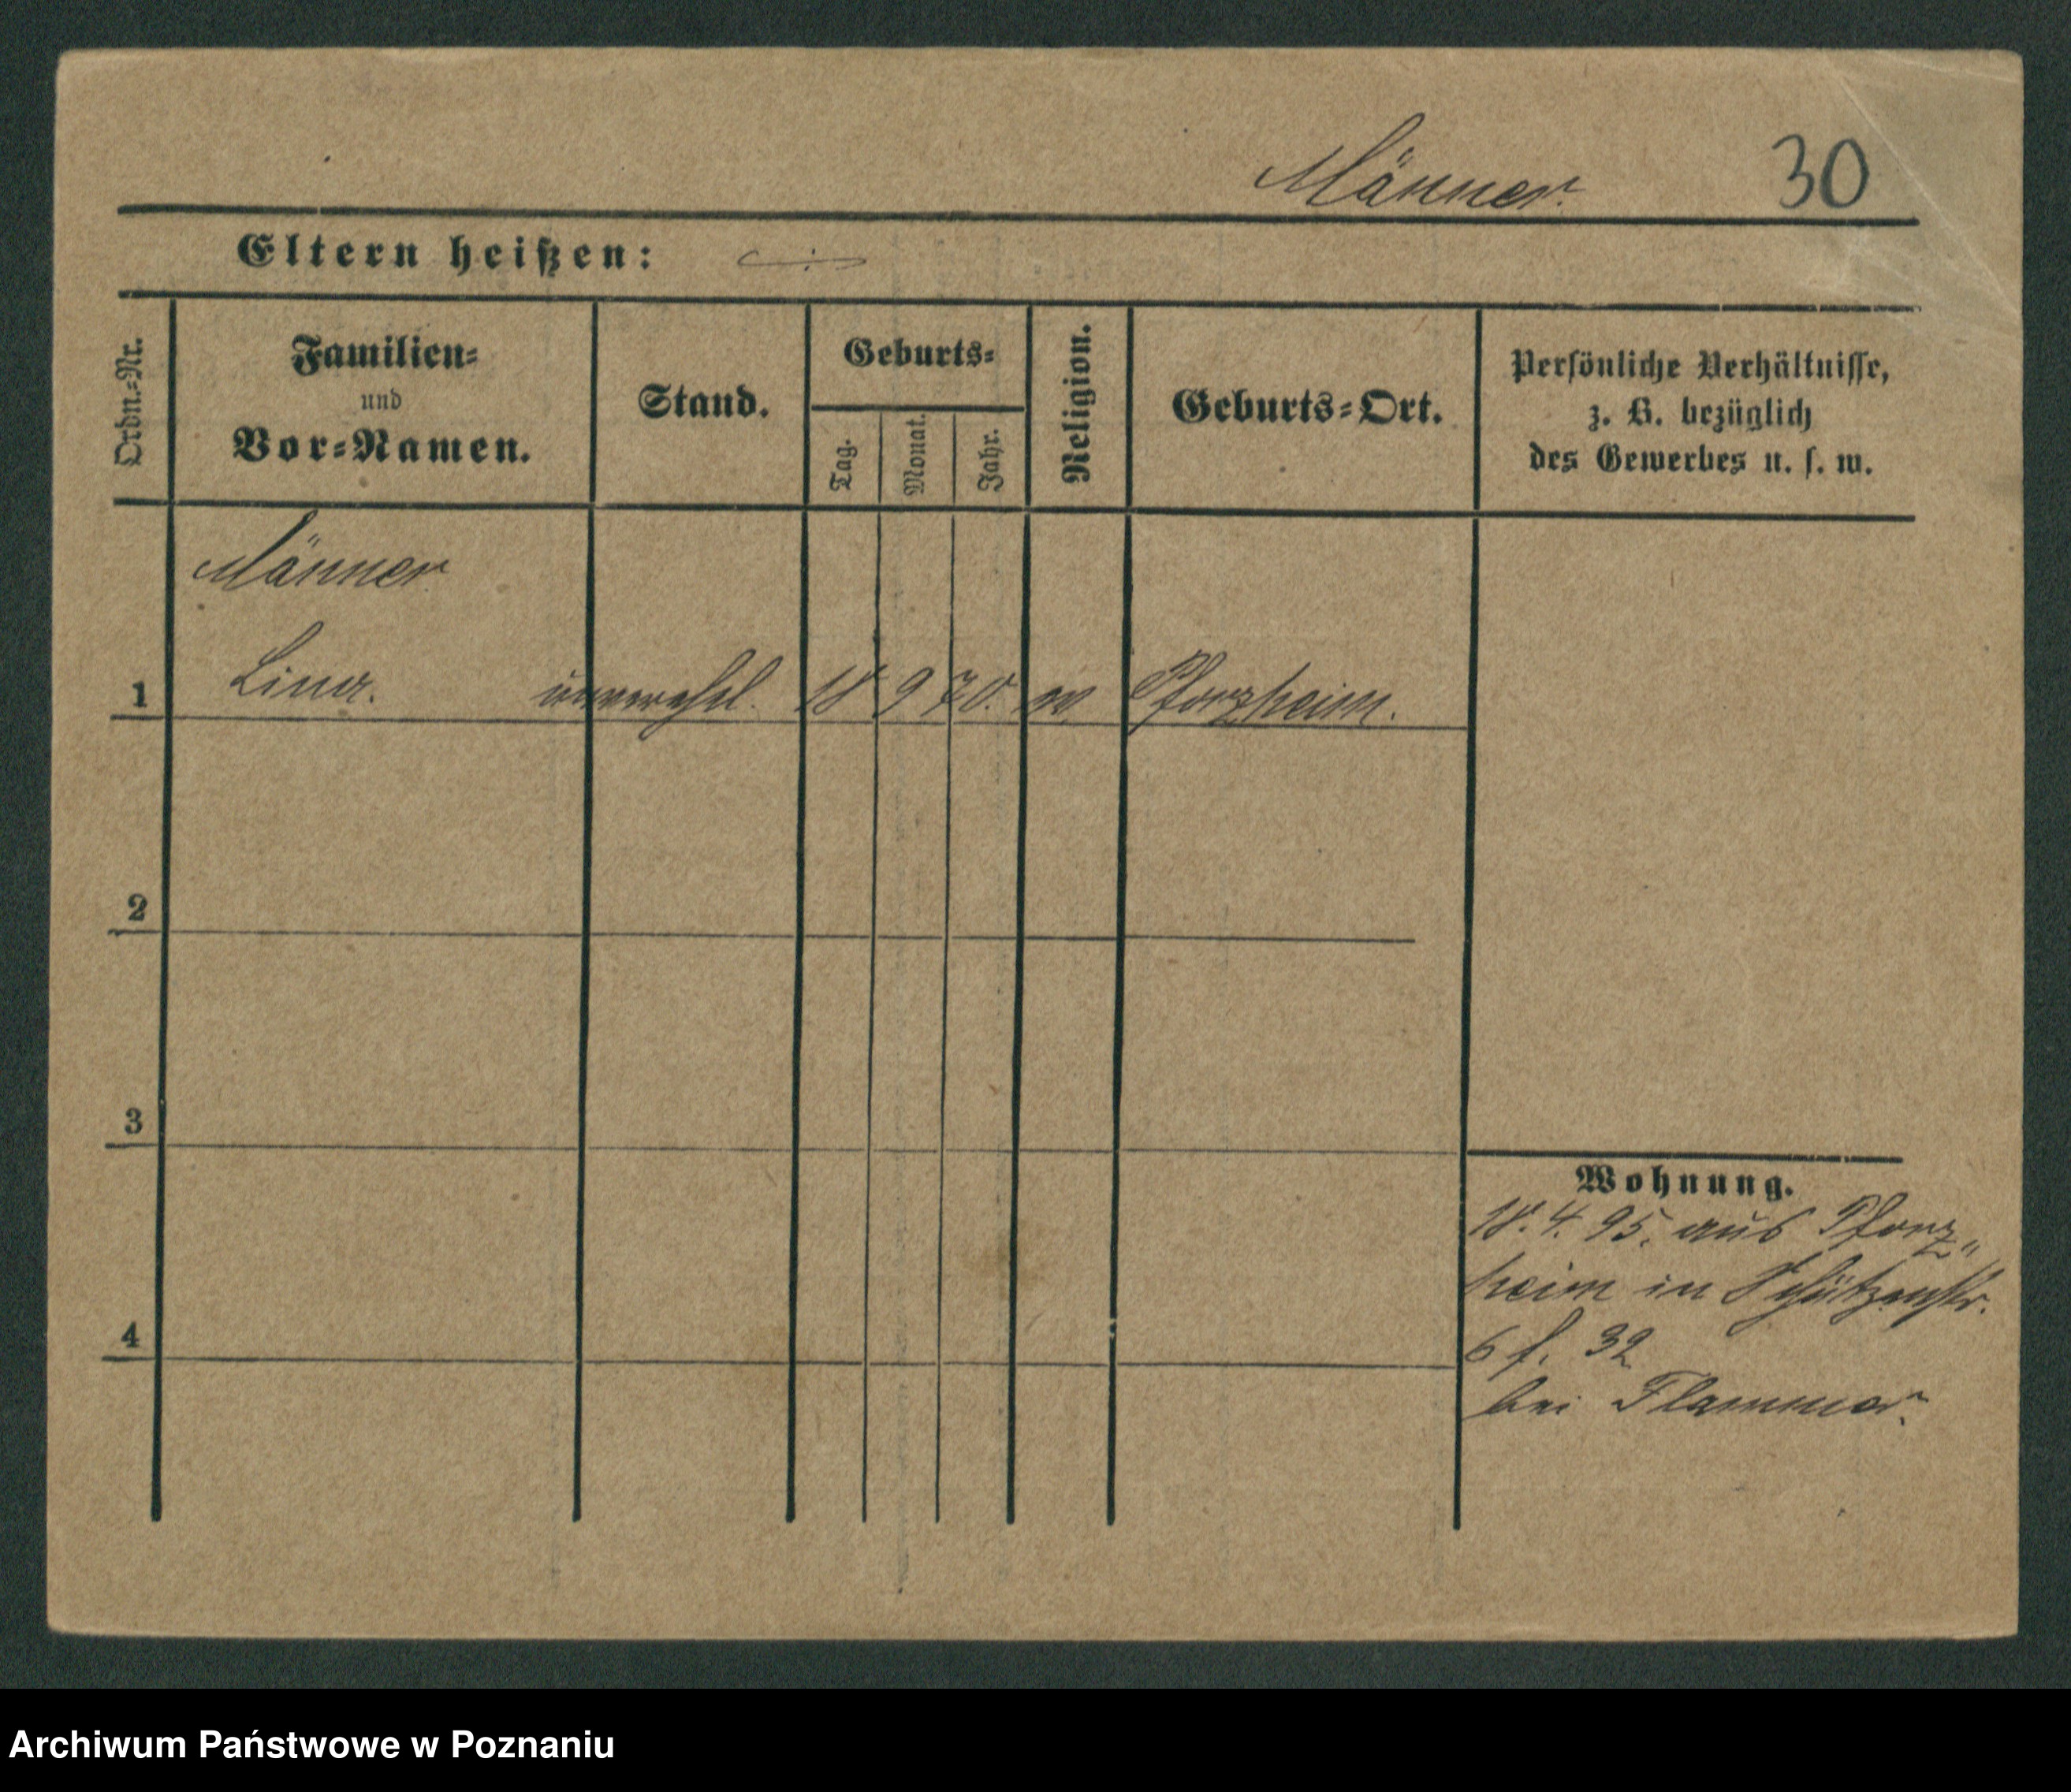 Männer
30
Eltern heißen: -:-
Ordn.=Nr.
Familien=
und
Vor=Namen.
Stand.
Geburts=
Tag. Monat. Jahr.
Religion.
Geburts=Ort.
Persönliche Verhältnisse,
z. B. bezüglich
des Gewerbes u. s. w.
Männer
1 Lina. unverehl. 18 9 70. ev Pforzheim.
2
3
4
Wohnung.
18. 4. 95. aus Pforz„
heim in Schützenstr.
6 f. 32
bei Flammer.
Archiwum Państwowe w Poznaniu